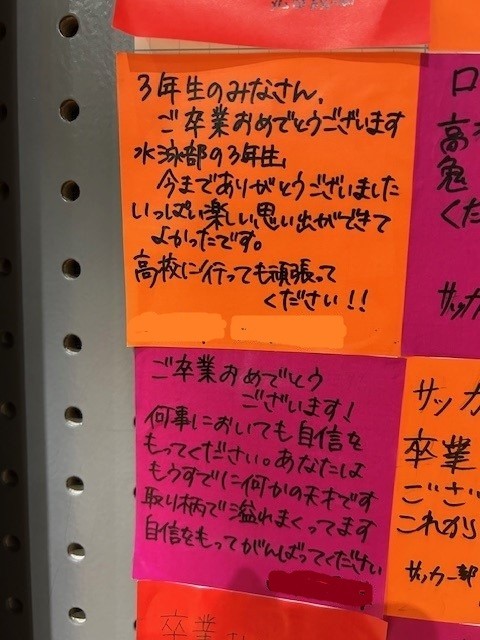 3年生のみなさん、
ご卒業おめでとうございます
水泳部の3年生、
今までありがとうございました
いっぱい楽しい思い出ができて
よかったです。
高校に行っても頑張って
ください!!
ご卒業おめでとう
ございます!
何事においても自信を
もってください。あなたは
もうすでに何かの天才です
取り柄で溢れまくってます
自信をもってがんばってください
ロ
高
鬼
くだ
サッカ
サッカ
卒業
ござ
これから
サッカー部
卒業お